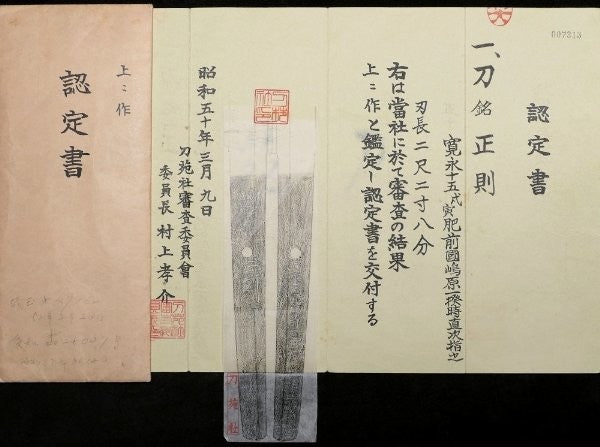 007313
認定書
一、刀 銘 正則
寛永十五戊寅肥前國嶋原一揆時直次指之
刃長 二尺二寸八分
右は當社に於て審査の結果
上々作と鑑定し認定書を交付する
昭和五十年三月九日
刀苑社審査委員會
委員長 村上孝介
刀苑社
上々作
認定書